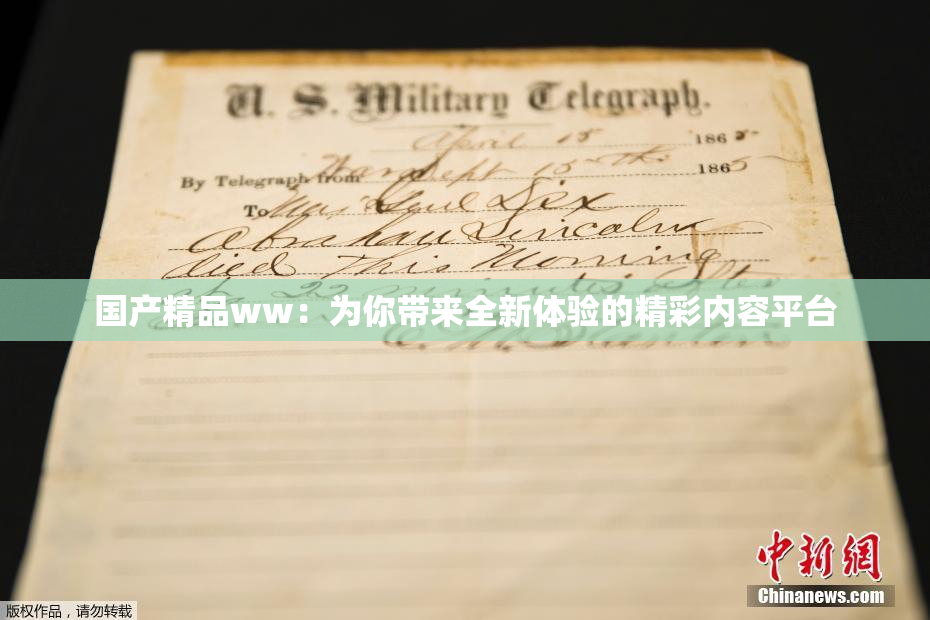 U. S. Military Telegraph.
April 15 1865
By Telegraph from War Dept 15th 1865
To Maj Genl Dix
Abraham Lincoln
died This Morning
at 22 minutes after
国产精品ww：为你带来全新体验的精彩内容平台
E. M. Stanton
中新网
Chinanews.com
版权作品，请勿转载